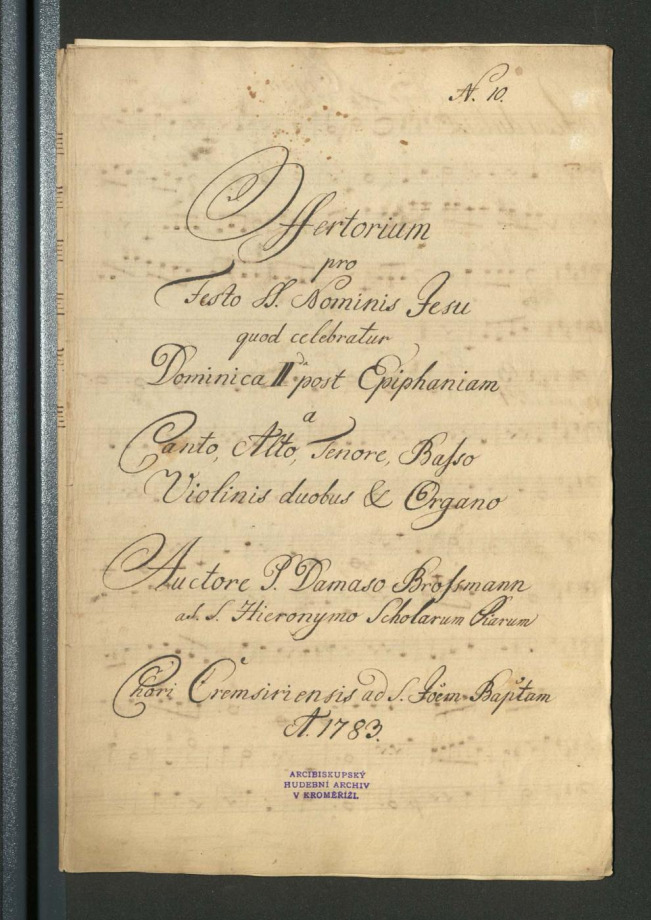 N. 10.
Offertorium
pro
Festo SS. Nominis Jesu
quod celebratur
Dominica II da post Epiphaniam
a
Canto, Alto, Tenore, Baſso
Violinis duobus & Organo
Auctore P. Damaso Broſsmann
a S. Hieronymo Scholarum Piarum
Chori Cremsiriensis ad S. Joem Baptam
A. 1783.
ARCIBISKUPSKÝ
HUDEBNÍ ARCHIV
V KROMĚŘÍŽI.